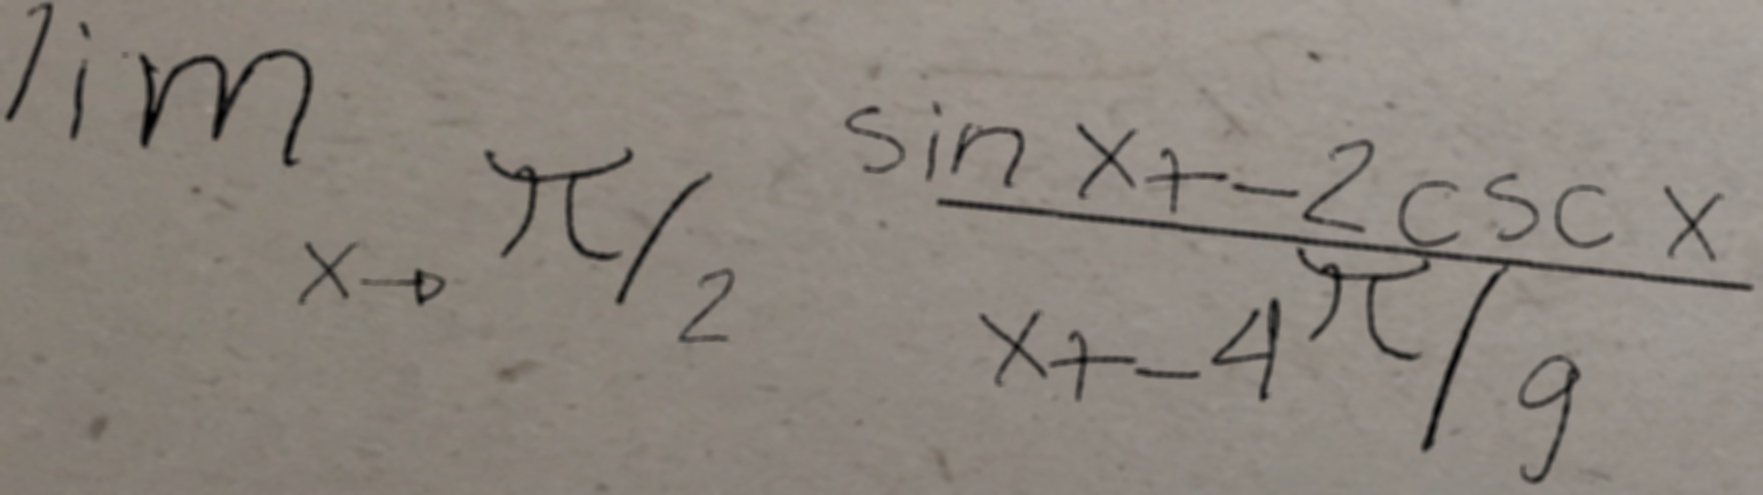 lim x→ π/2 sin x + -2 csc x / x + -4π/9